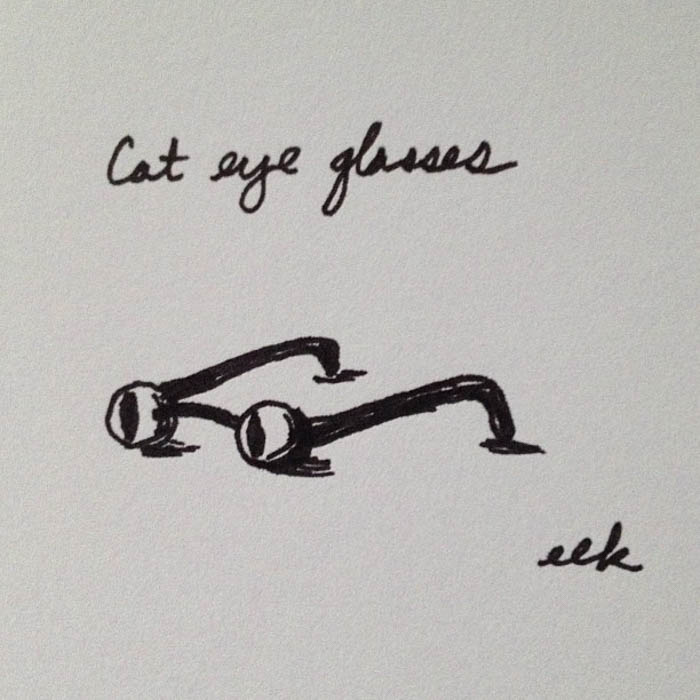 Cat eye glasses
eek